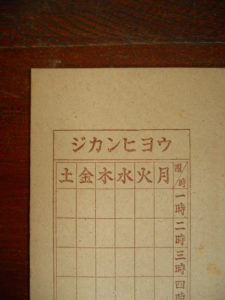 ジカンヒヨウ
月火水木金土
時
一時
二時
三時
四時